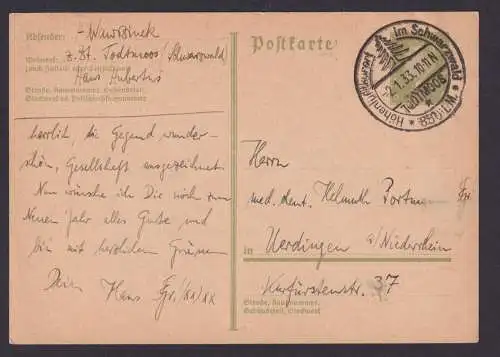 Absender:
z. Zt. Todtmoos (Schwarzwald)
Wohnort,
Haus Hubertus
Straße, Hausnummer,
herrlich, die Gegend wunder-
schön, Gesellschaft ausgezeichnet.
Nun wünsche ich Dir noch zum
Neuen Jahr alles Gute und
bin mit herzlichen Grüssen
Dein Hans Fr. (xx) xx
Postkarte
Höhenluftkurort im Schwarzwald
-2.1.33. 10-11 N
TODTMOOS
* 850 ü. M. *
Herrn
med. dent. Helmuth
in Uerdingen a/Niederrhein
Kurfürstenstr. 37
Straße, Hausnummer,
Gebäudeteil, Stockwerk